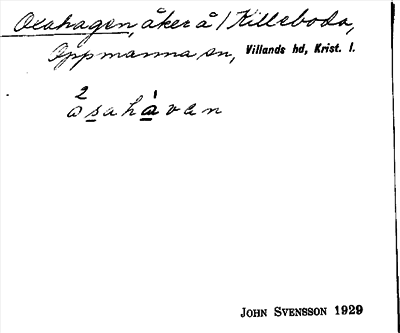 Oxahagen, åker å 1 Killeboda,
Oppmanna sn, Villands hd, Krist. l.
2
osahàvan
JOHN SVENSSON 1929